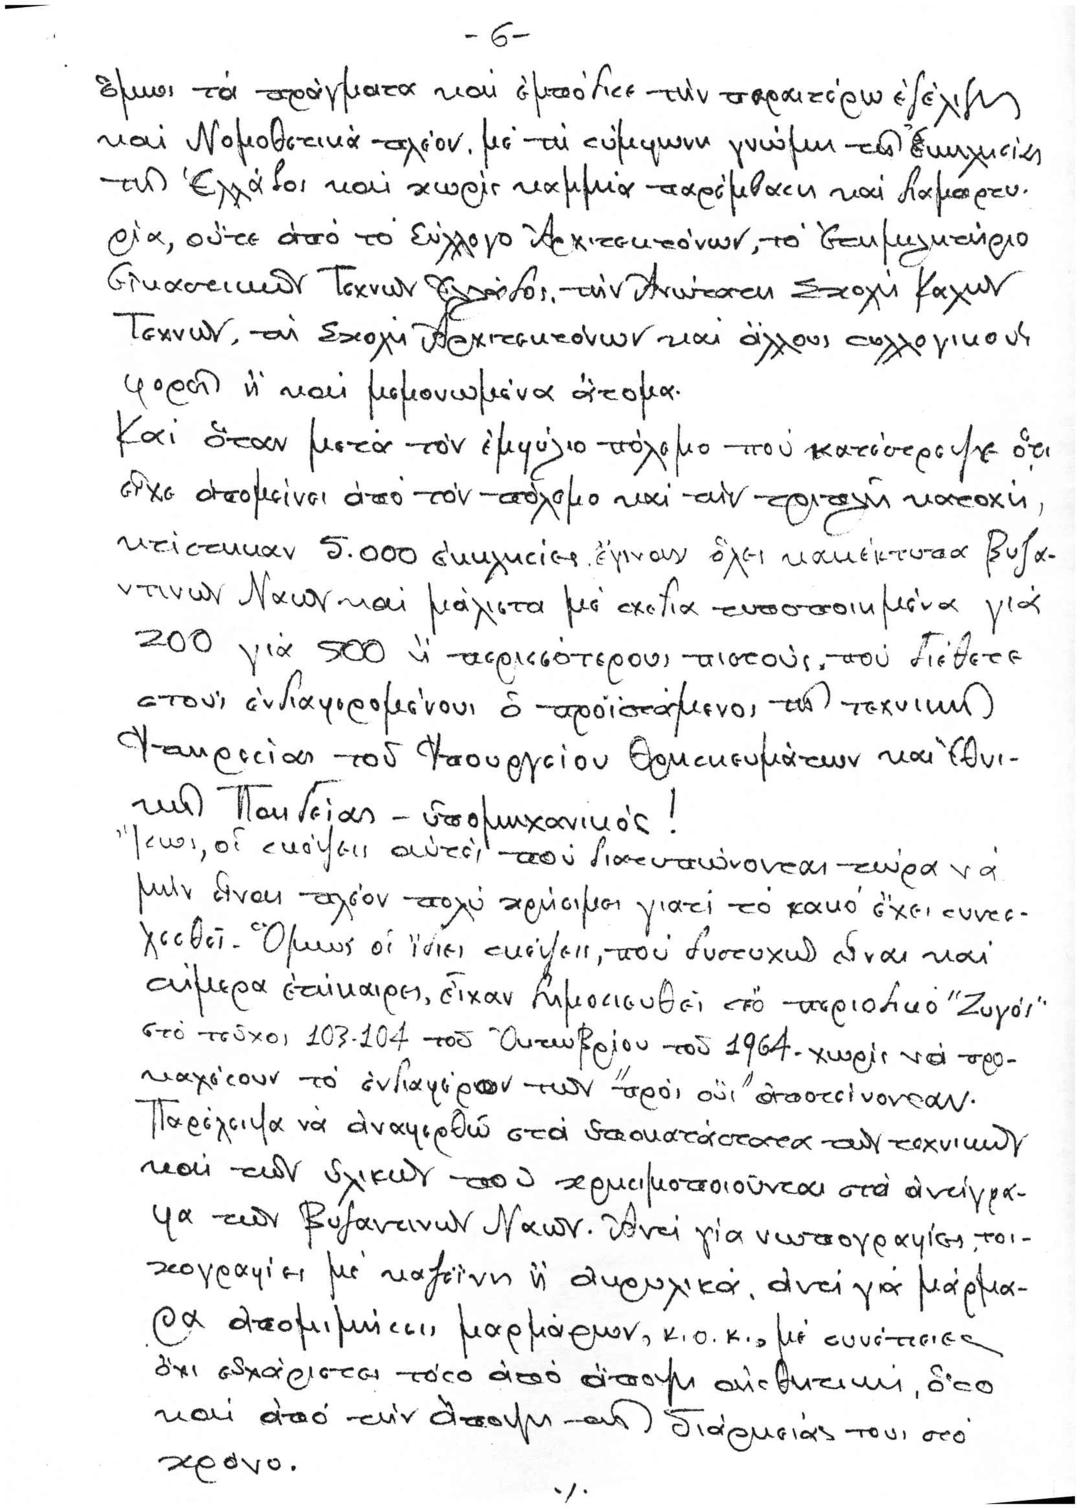 -6-
τά πράγματα καί ἐμπόδισε τήν περαιτέρω ἐξέλιξη
καί Νομοθετικά πλέον, μέ τή σύμφωνη γνώμη τῆς Ἐκκλησίας
τῆς Ἑλλάδος καί χωρίς καμμιά παρέμβαση καί διαμαρτυ-
ρία, οὔτε ἀπό τό Σύλλογο Ἀρχιτεκτόνων, τό Ἐπιμελητήριο
Εἰκαστικῶν Τεχνῶν Ἑλλάδος, τήν Ἀνώτατη Σχολή Καλῶν
Τεχνῶν, τή Σχολή Ἀρχιτεκτόνων καί ἄλλους συλλογικούς
φορεῖς ἤ καί μεμονωμένα ἄτομα.
Καί ὅταν μετά τόν ἐμφύλιο πόλεμο πού κατέστρεψε ὅτι
εἶχε ἀπομείνει ἀπό τόν πόλεμο καί τήν τριπλῆ κατοχή,
κτίστηκαν 5.000 ἐκκλησίες, ἔγιναν ὅλες κακέκτυπα Βυζα-
ντινῶν Ναῶν καί μάλιστα μέ σχέδια τυποποιημένα γιά
200 γιά 500 ἤ περισσότερους πιστούς, πού διέθετε
στούς ἐνδιαφερομένους ὁ προϊστάμενος τῆς τεχνικῆς
Ὑπηρεσίας τοῦ Ὑπουργείου Θρησκευμάτων καί Ἐθνι-
κῆς Παιδείας - ὑπομηχανικός!
Ἴσως, οἱ σκέψεις αὐτές πού διατυπώνονται τώρα νά
μήν εἶναι πλέον πολύ χρήσιμες γιατί τό κακό ἔχει συντε-
λεσθεῖ. Ὅμως οἱ ἴδιες σκέψεις, πού δυστυχῶς εἶναι καί
σήμερα ἐπίκαιρες, εἶχαν δημοσιευθεῖ στό περιοδικό "Ζυγός"
στό τεῦχος 103-104 τοῦ Ὀκτωβρίου τοῦ 1964. χωρίς νά προ-
καλέσουν τό ἐνδιαφέρον τῶν "πρός οὕς" ἀποτείνονταν.
Παρέλειψα νά ἀναφερθῶ στά ὑποκατάστατα τῶν τεχνικῶν
καί τῶν ὑλικῶν πού χρησιμοποιοῦνται στά ἀντίγρα-
φα τῶν Βυζαντινῶν Ναῶν. Ἀντί γιά νωπογραφίες, τοι-
χογραφίες μέ καζεΐνη ἤ ἀκρυλικά, ἀντί γιά μάρμα-
ρα ἀπομιμήσεις μαρμάρων, κ.ο.κ., μέ συνέπειες
ὄχι εὐχάριστες τόσο ἀπό ἄποψη αἰσθητική, ὅσο
καί ἀπό τήν ἄποψη τῆς διάρκειάς τους στό
χρόνο.
./.